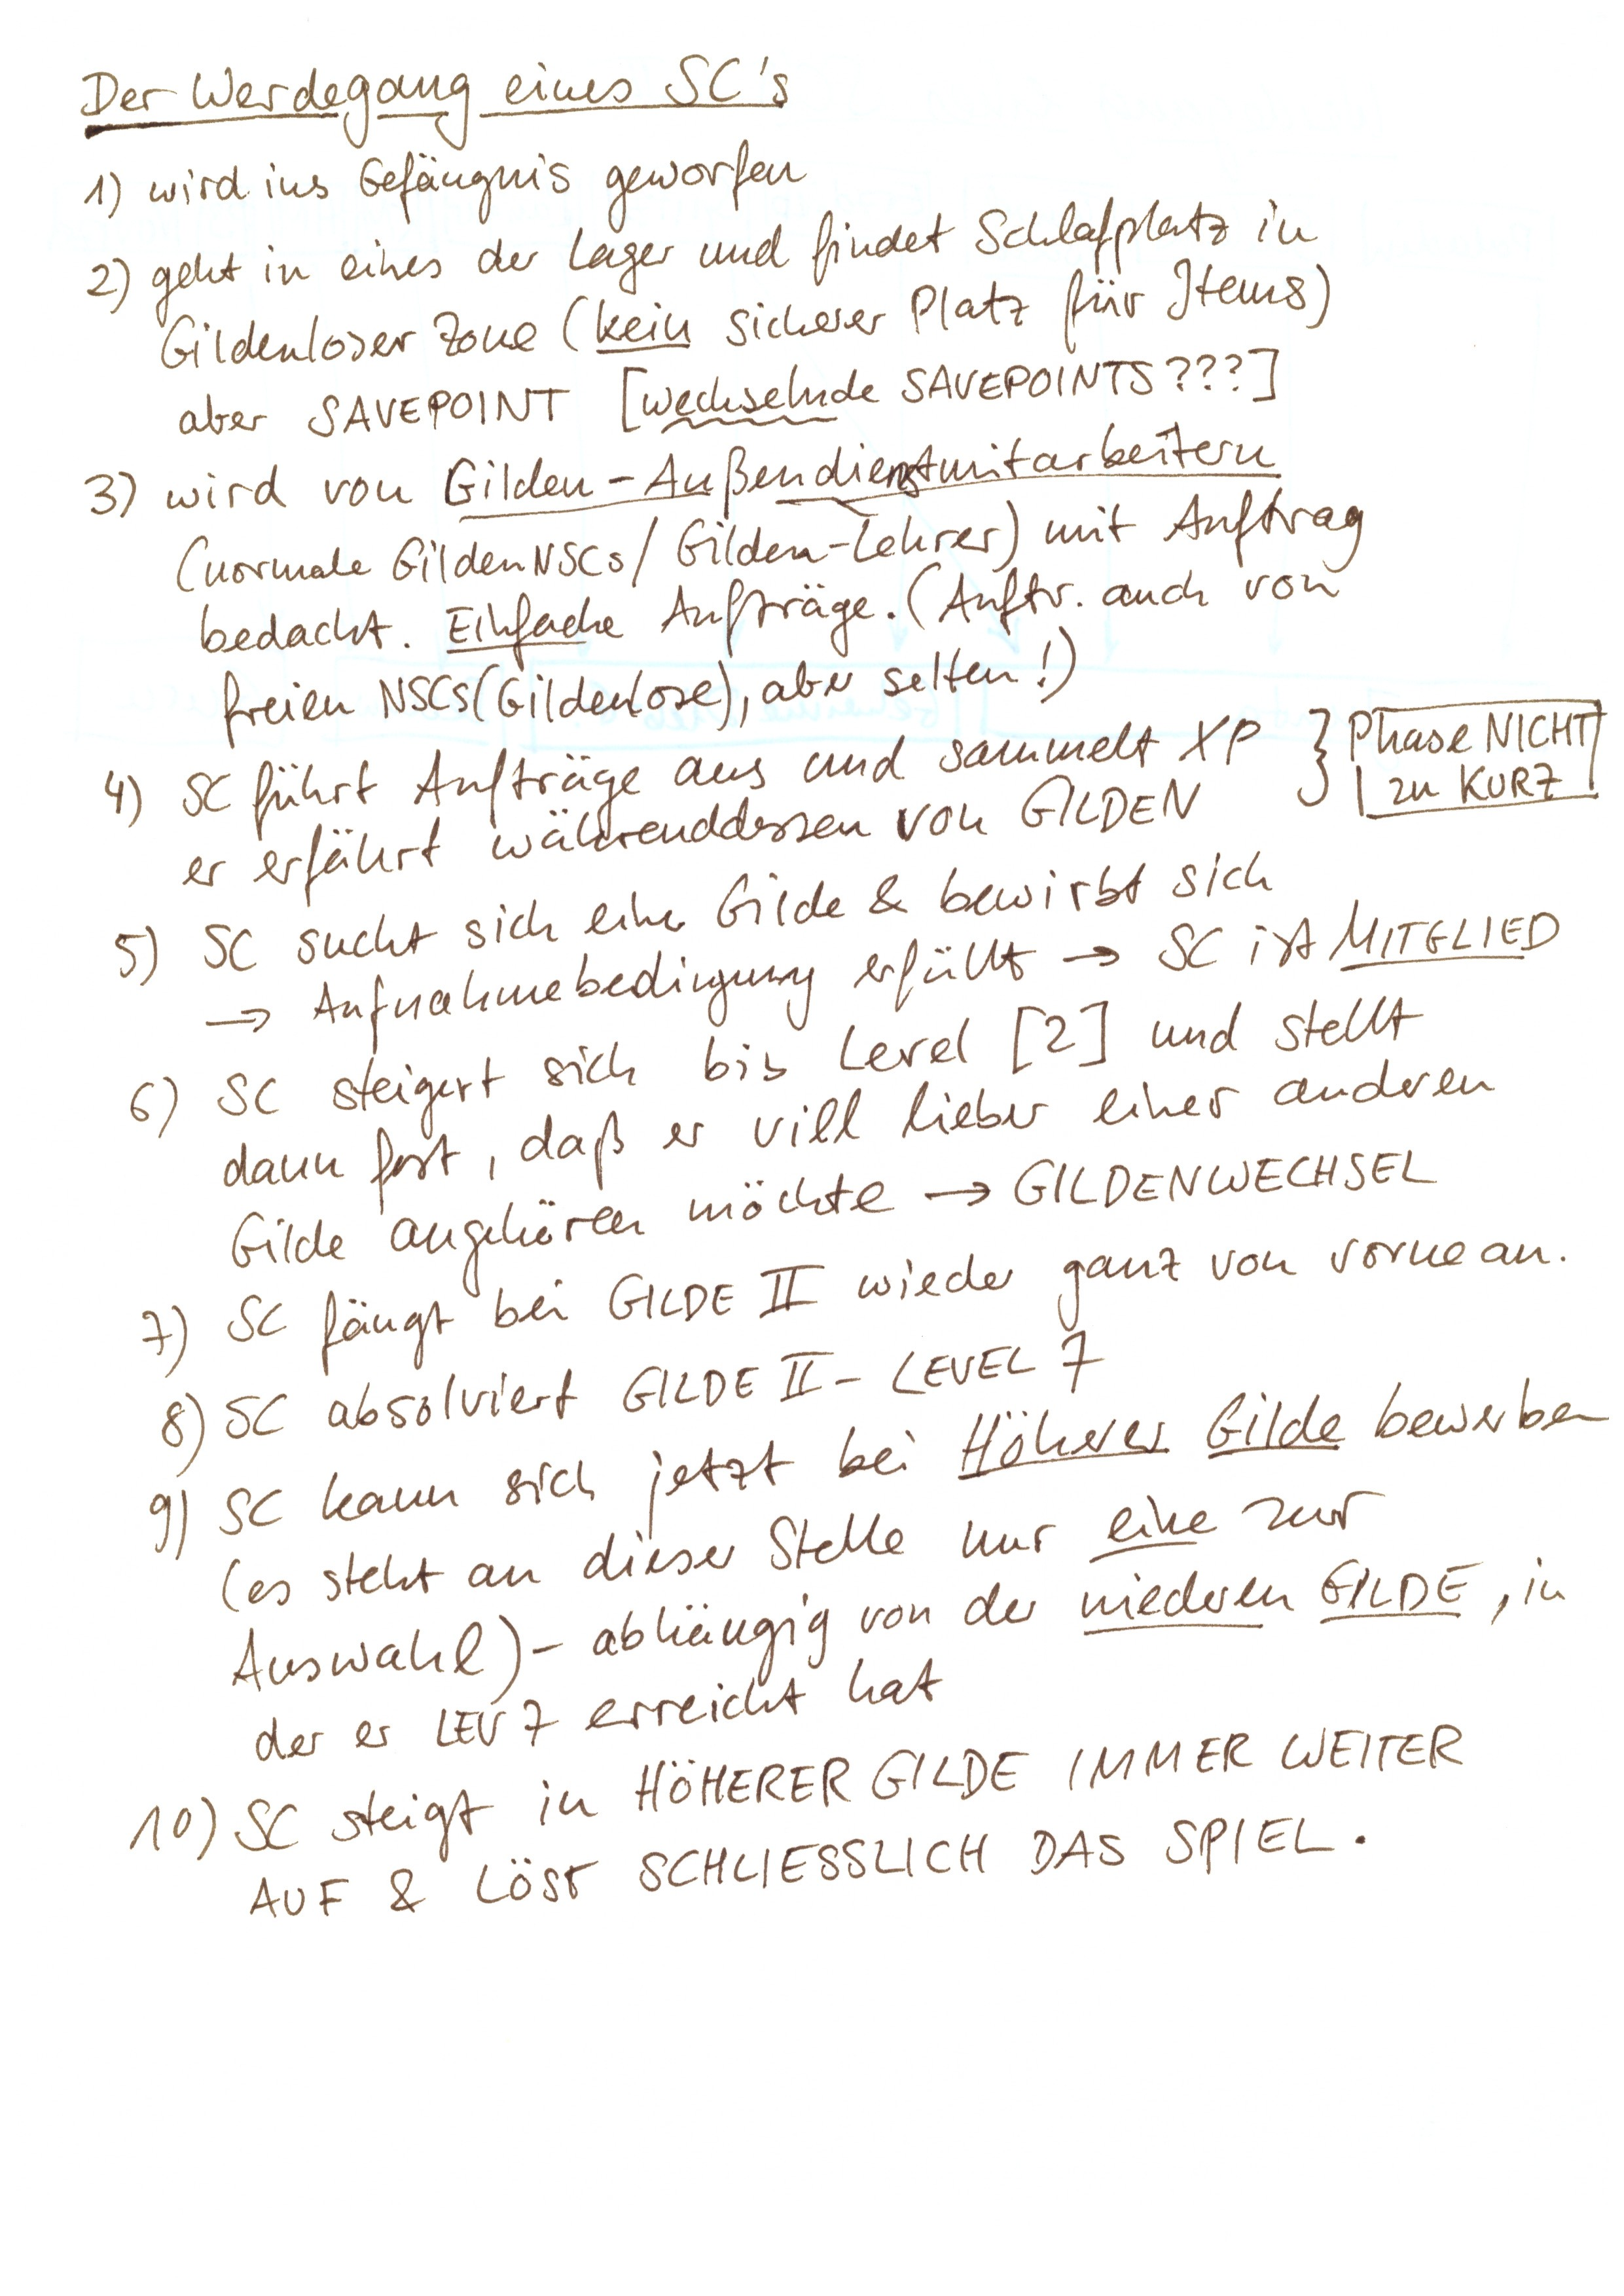 Der Werdegang eines SC's
1) wird ins Gefängnis geworfen
2) geht in eines der Lager und findet Schlafplatz in
Gildenloser Zone (kein sicherer Platz für Items)
aber SAVEPOINT [wechselnde SAVEPOINTS???]
3) wird von Gilden-Außendienstmitarbeitern
(normale GildenNSCs/Gilden-Lehrer) mit Auftrag
bedacht. Einfache Aufträge. (Auftr. auch von
freien NSCs (Gildenlose), aber selten!)
4) SC führt Aufträge aus und sammelt XP } Phase NICHT
er erfährt währenddessen von GILDEN zu KURZ
5) SC sucht sich eine Gilde & bewirbt sich
→ Aufnahmebedingung erfüllt → SC ist MITGLIED
6) SC steigert sich bis Level [2] und stellt
dann fest, daß er viel lieber einer anderen
Gilde angehören möchte → GILDENWECHSEL
7) SC fängt bei GILDE II wieder ganz von vorne an.
8) SC absolviert GILDE II - LEVEL 7
9) SC kann sich jetzt bei Höherer Gilde bewerben
(es steht an dieser Stelle nur eine zur
Auswahl) - abhängig von der niederen GILDE, in
der er LEV 7 erreicht hat
10) SC steigt in HÖHERER GILDE IMMER WEITER
AUF & LÖST SCHLIESSLICH DAS SPIEL.